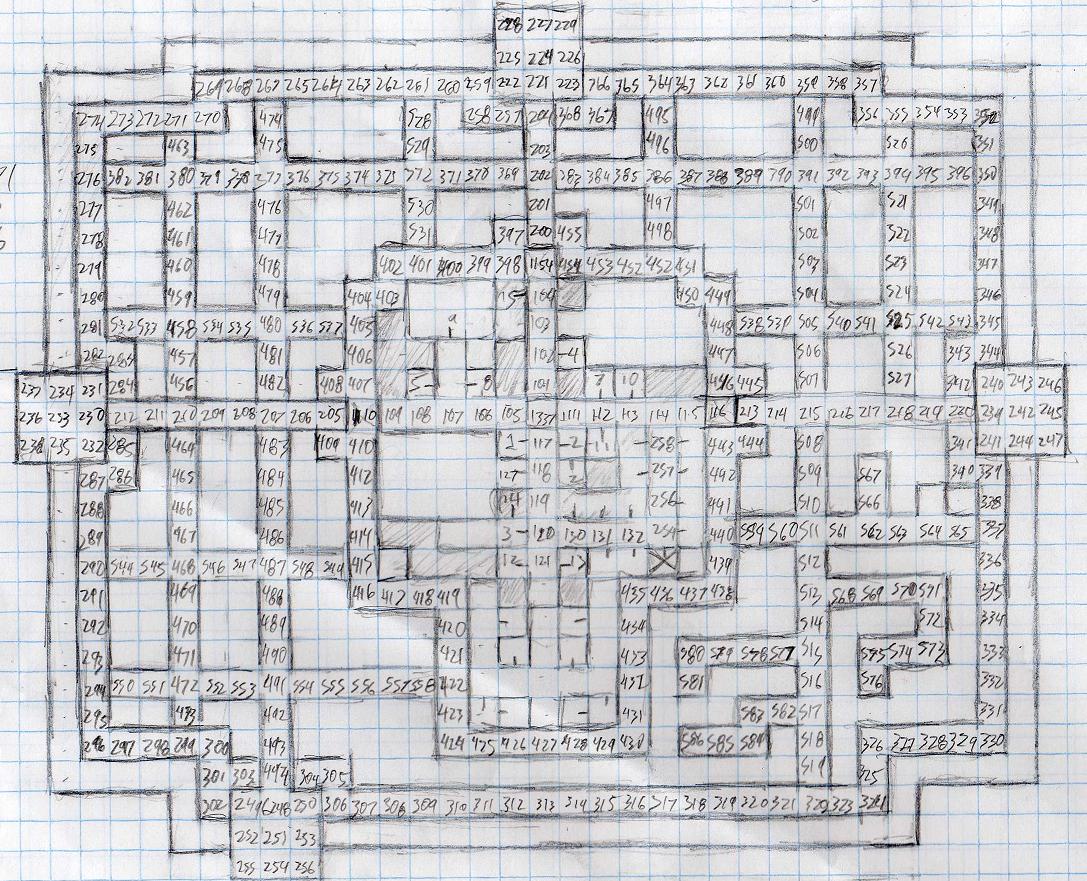 228 227 229
225 224 226
269 268 267 265 264 263 262 261 260 259 222 221 223 366 365 364 363 362 361 360 359 358 357
274 273 272 271 270 474 528 258 257 204 368 367 495 499 356 355 354 353 352
275 463 475 529 203 496 500 520 351
276 382 381 380 379 378 277 376 375 374 373 372 371 370 369 202 383 384 385 386 387 388 389 390 391 392 393 394 395 396 350
277 462 476 530 201 497 501 521 349
278 461 477 531 397 200 455 498 502 522 348
279 460 478 402 401 400 399 398 1154 454 453 452 452 451 503 523 347
280 459 479 404 403 15 104 450 449 504 524 346
281 532 533 458 534 535 480 536 537 405 103 448 538 539 505 540 541 525 542 543 345
282 283 457 481 406 102 4 447 506 526 343 344
237 234 231 284 456 482 408 407 5 8 101 7 10 446 445 507 527 342 240 243 246
236 233 230 212 211 210 209 208 207 206 205 110 109 108 107 106 105 1337 111 112 113 114 115 116 213 214 215 216 217 218 219 220 239 242 245
238 235 232 285 464 483 409 410 1 117 2 258 443 444 508 341 241 244 247
287 286 465 484 412 127 118 257 442 509 567 340 339
288 466 485 413 14 119 256 441 510 566 338
289 467 486 414 3 120 130 131 132 254 440 559 560 511 561 562 563 564 565 337
290 544 545 468 546 547 487 548 549 415 12 121 13 439 512 336
291 469 488 416 417 418 419 435 436 437 438 513 568 569 570 571 335
292 470 489 420 434 514 572 334
293 471 490 421 433 580 579 578 577 515 575 574 573 333
294 550 551 472 552 553 491 554 555 556 557 558 422 432 581 516 576 332
295 473 492 423 431 583 582 517 331
296 297 298 299 300 493 424 425 426 427 428 429 430 586 585 584 518 326 327 328 329 330
301 303 494 304 305 519 325
302 249 248 250 306 307 308 309 310 311 312 313 314 315 316 317 318 319 320 321 322 323 324
252 251 253
255 254 256